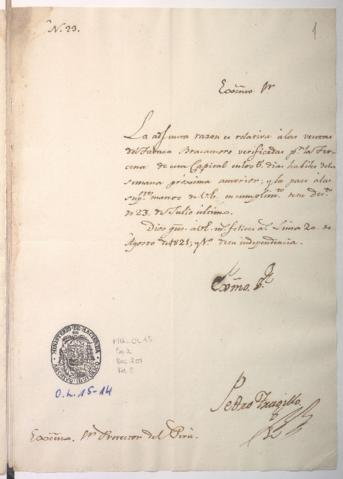 N. 23.
1
Excmo. Sr
La adjunta razon es relativa á las ventas
del Tabaco Bracamoro verificadas pr. la Ter-
cena de esta Capital en los 6. dias habiles de la
semana próxima anterior; y la paso á las
sups. manos de V.E. en cumplimto. de su decto.
de 23. de Julio ultimo.
Dios gue. á V.E. ms. Lima 20. de
Agosto de 1821, y 1o. de su independencia.
Exmo. Sr.
Pedro Trugillo
Excmo. Sr. Protector del Perú.
MINISTERIO DE HACIENDA
O.L. 15-14